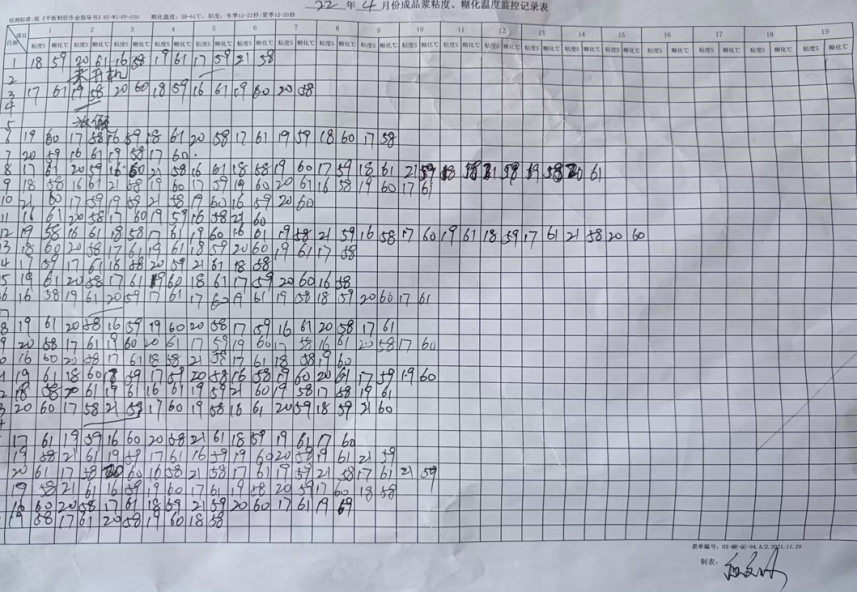 22 年 4 月份成品浆粘度、糊化温度监控记录表
糊化温度：58-61℃，粘度：冬季12-22秒/夏季12-20秒
项目 1 2 3 4 5 6 7 8 9 10 11 12 13 14 15 16 17 18 19
日期 粘度S 糊化℃ 粘度S 糊化℃ 粘度S 糊化℃ 粘度S 糊化℃ 粘度S 糊化℃ 粘度S 糊化℃ 粘度S 糊化℃ 粘度S 糊化℃ 粘度S 糊化℃ 粘度S 糊化℃ 粘度S 糊化℃ 粘度S 糊化℃ 粘度S 糊化℃ 粘度S 糊化℃ 粘度S 糊化℃ 粘度S 糊化℃ 粘度S 糊化℃ 粘度S 糊化℃ 粘度S 糊化℃
1 18 59 20 61 16 58 19 61 17 59 21 58
2 未开机
3 17 61 19 58 20 60 18 59 16 61 19 60 20 58
4
5 放假
6 19 60 17 58 16 59 18 61 20 58 17 61 19 59 18 60 17 58
7 20 59 16 61 19 58 17 60
8 17 61 20 59 16 60 21 58 16 61 18 58 19 60 17 59 18 61 21 59 18 58 21 59 19 58 20 61
9 18 58 16 61 21 58 19 60 17 59 19 60 20 61 16 58 19 60 17 61
10 21 60 17 59 19 59 21 58 19 60 16 59 20 60
11 16 61 20 58 17 60 19 59 16 58 21 60
12 19 58 16 61 18 58 17 61 19 60 16 61 19 58 21 59 16 58 17 60 19 61 18 59 17 61 21 58 20 60
3 18 60 20 58 17 61 19 61 18 59 20 60 19 61 17 58
4 17 59 17 61 16 58 20 59 21 61 18 58
5 19 61 20 58 17 61 19 60 18 61 17 59 20 60 16 58
6 16 58 19 61 20 59 17 61 17 60 19 61 19 58 18 59 20 60 17 61
8 19 61 20 58 16 59 19 60 20 58 17 59 16 61 20 58 17 61
9 20 58 17 61 19 60 20 61 17 59 19 60 17 58 16 61 20 58 17 60
16 60 20 58 17 61 18 58 21 58 17 61 18 58 19 60
19 61 18 60 59 17 59 20 58 16 58 19 60 20 61 17 59 19 60
2 18 58 20 61 19 61 16 61 19 59 21 60 19 58 17 58 19 61
3 20 60 17 58 21 59 17 60 19 58 16 61 20 59 18 59 21 60
17 61 19 59 16 60 20 58 21 61 18 59 19 61 17 60
19 58 21 61 19 59 17 61 16 59 19 60 20 58 19 61 21 59
20 61 17 58 20 60 16 58 21 58 17 61 19 59 21 58 17 61 21 59
19 58 21 61 16 59 19 60 17 61 19 58 20 59 17 60 18 58
16 60 20 58 17 61 18 59 21 59 20 60 17 61 19 59
19 58 17 61 20 58 19 60 18 58
表单编号：HY-WR-QC-94.A/2.2021.11.29
制表：